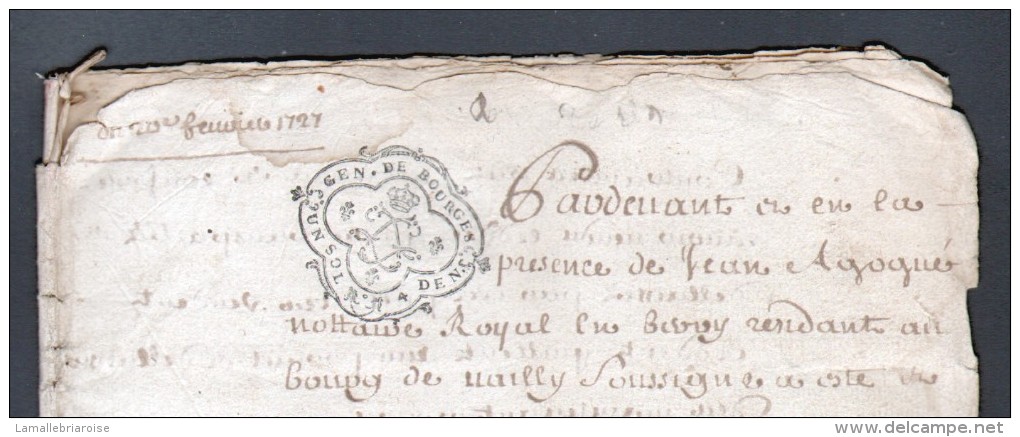 du 20e feuvrier 1727
GEN. DE BOURGES
UN SOL
4 DEN.
Pardevant et en la
presence de Jean Agogué
nottaire Royal en berry residant au
bourg de vailly soussigne a esté
Lamallebriaroise
delcampe.net